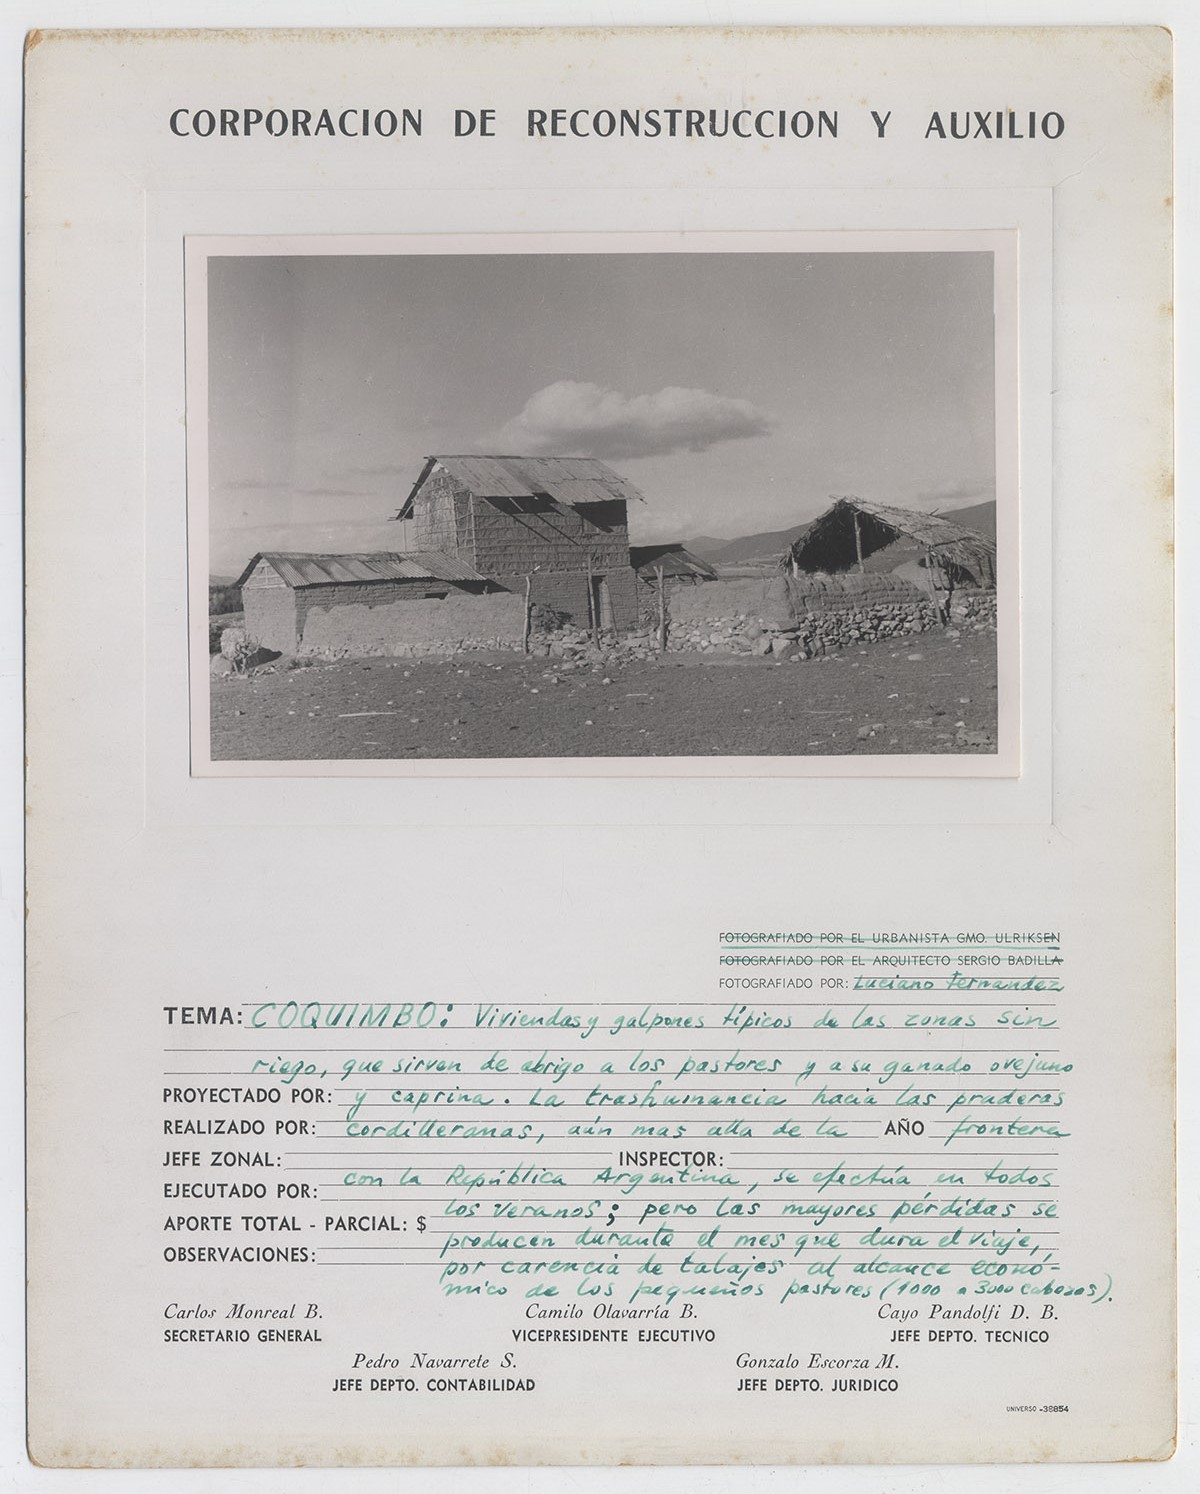 CORPORACION DE RECONSTRUCCION Y AUXILIO
FOTOGRAFIADO POR EL URBANISTA GMO. ULRIKSEN
FOTOGRAFIADO POR EL ARQUITECTO SERGIO BADILLA
FOTOGRAFIADO POR: Luciano Fernandez
TEMA: COQUIMBO: Viviendas y galpones típicos de las zonas sin
riego, que sirven de abrigo a los pastores y a su ganado ovejuno
PROYECTADO POR: y caprino. La trashumancia hacia las praderas
REALIZADO POR: cordilleranas, aún mas alla de la AÑO frontera
JEFE ZONAL: INSPECTOR:
con la República Argentina, se efectúa en todos
EJECUTADO POR:
los veranos; pero las mayores pérdidas se
APORTE TOTAL - PARCIAL: $
producen durante el mes que dura el viaje,
OBSERVACIONES:
por carencia de talajes al alcance econó-
mico de los pequeños pastores (1000 a 3000 cabezas).
Carlos Monreal B. Camilo Olavarría B. Cayo Pandolfi D. B.
SECRETARIO GENERAL VICEPRESIDENTE EJECUTIVO JEFE DEPTO. TECNICO
Pedro Navarrete S. Gonzalo Escorza M.
JEFE DEPTO. CONTABILIDAD JEFE DEPTO. JURIDICO
UNIVERSO -38854